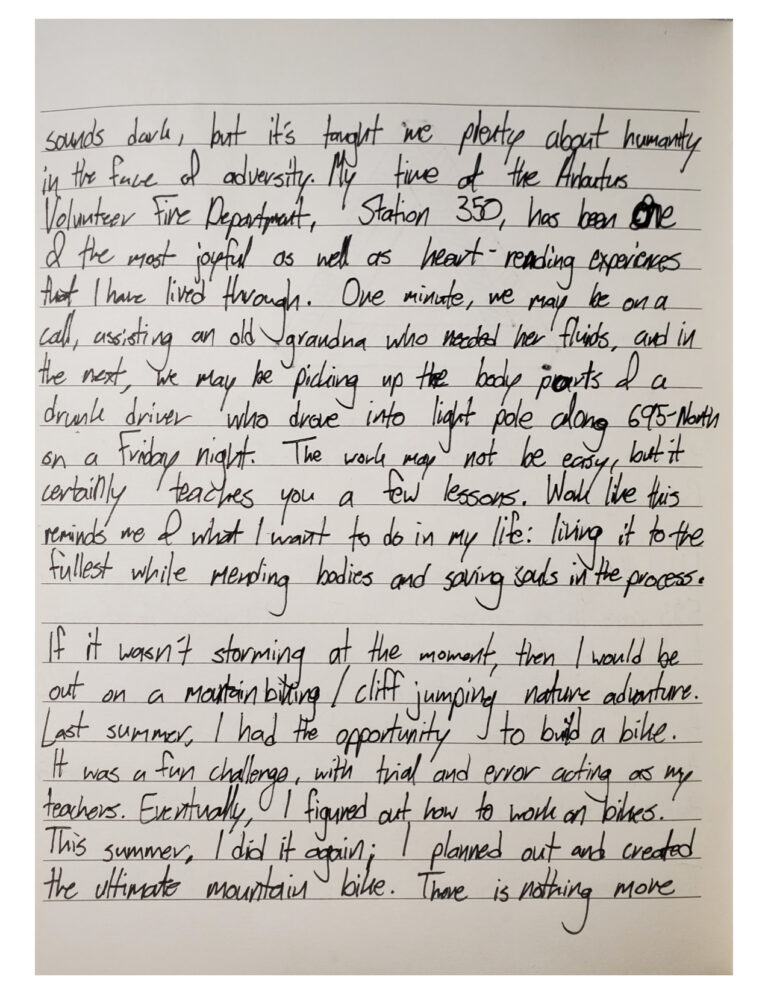 sounds dark, but it's taught me plenty about humanity
in the face of adversity. My time at the Arbutus
Volunteer Fire Department, Station 350, has been One
of the most joyful as well as heart-rending experiences
that I have lived through. One minute, we may be on a
call, assisting an old grandma who needed her fluids, and in
the next, we may be picking up the body parts of a
drunk driver who drove into light pole along 695-North
on a Friday night. The work may not be easy, but it
certainly teaches you a few lessons. Work like this
reminds me of what I want to do in my life: living it to the
fullest while mending bodies and saving souls in the process.
If it wasn't storming at the moment, then I would be
out on a mountain biking / cliff jumping nature adventure.
Last summer, I had the opportunity to build a bike.
It was a fun challenge, with trial and error acting as my
teachers. Eventually, I figured out how to work on bikes.
This summer, I did it again; I planned out and created
the ultimate mountain bike. There is nothing more